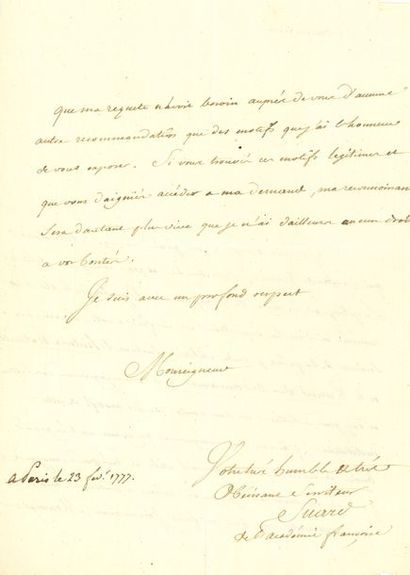 que ma requete n'avoit besoin auprès de vous d'aucune
autre recommandation que des motifs que j'ai l'honneur
de vous exposer. Si vous trouvés ces motifs legitimes et
que vous daigniés accéder a ma demande, ma reconnoissance
sera d'autant plus vive que je n'ai d'ailleurs aucun droit
a vos bontés.
Je suis avec un profond respect
Monseigneur
Votre très humble et très
a Paris le 23 fevr. 1777.
Obéissant serviteur
Suard
de l'académie françoise